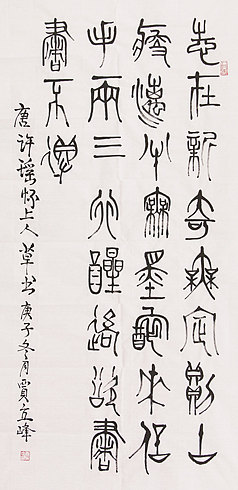 志在新奇無定則古
瘦灕半無墨醉來信
手兩三行醒後却書
書不得
唐许瑶怀上人草书庚子冬月贾立峰